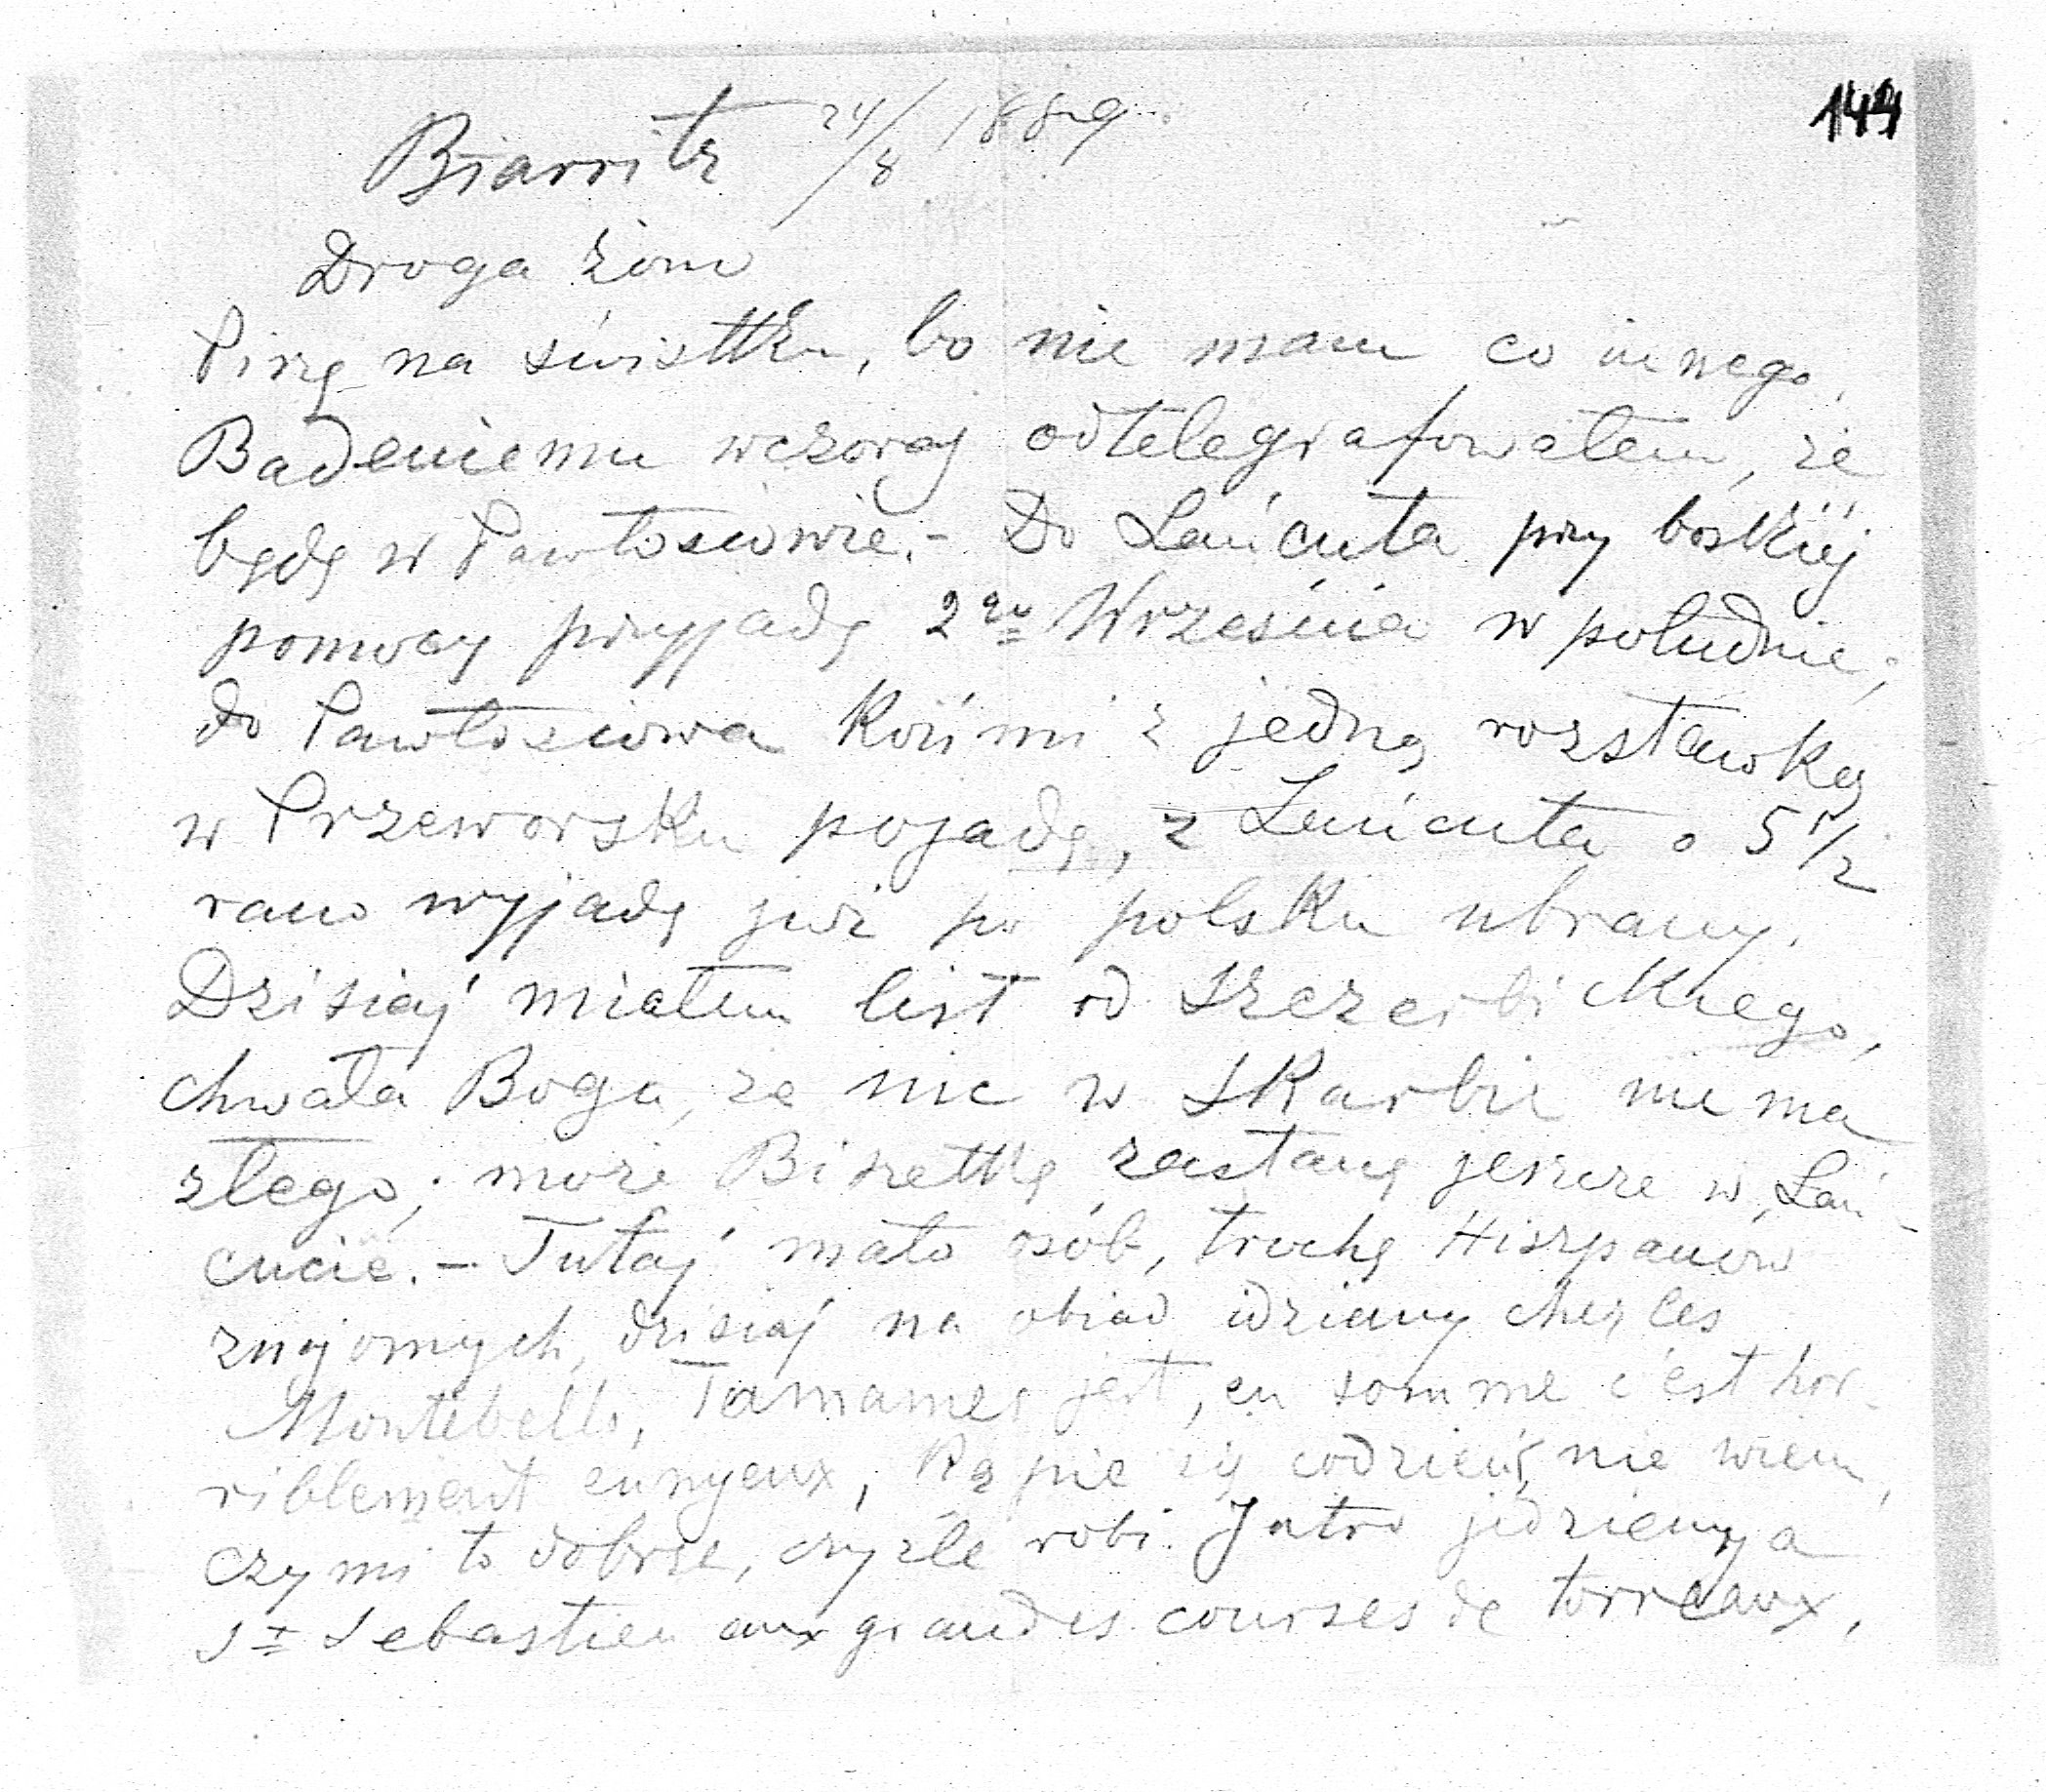 144
Biarritz 24/8 1889.
Droga żono
Piszę na świstku, bo nie mam co innego,
Badeniemu wczoraj odtelegrafowałem, że
będę w Pawłosiowie.- Do Łańcuta przy boskiéj
pomocy przyjadę 2go Września w południe;
do Pawłosiowa Końmi z jedną rozstawką
w Przeworsku pojadę, z Łańcuta o 5 1/2
rano wyjadę już po polsku ubrany.
Dzisiaj miałem list od Szczerbickiego,
chwała Bogu, że nic w Skarbie nie ma
złego; może Biszettkę zastanę jeszcze w Łań-
cucie. - Tutaj mało osób, trochę Hiszpanów
znajomych, dzisiaj na obiad idziemy chez les
Montebello, Tamames jest, en somme c'est hor-
riblement ennyeux, Kąpię się codzień, nie wiem,
czy mi to dobrze, czy źle robi. Jutro jedziemy a
St Sebastien aux grandes courses de torreaux,